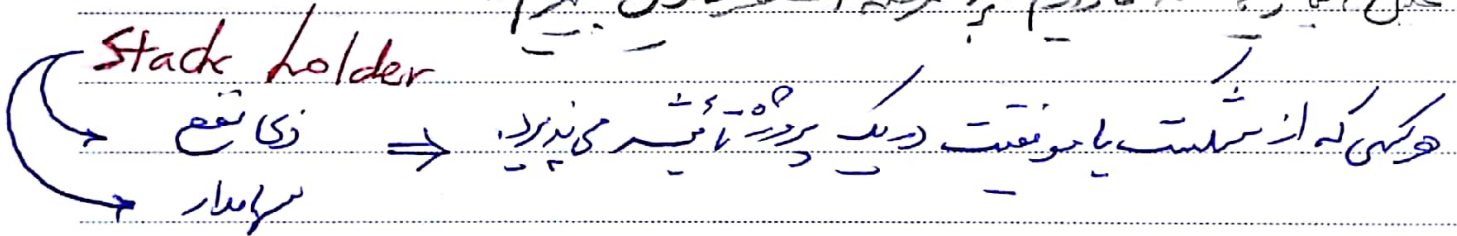 Stack holder
ذی نفع ⇒ هر کسی که از شکست یا موفقیت در یک پروژه تأثیر می پذیرد.
سهامدار